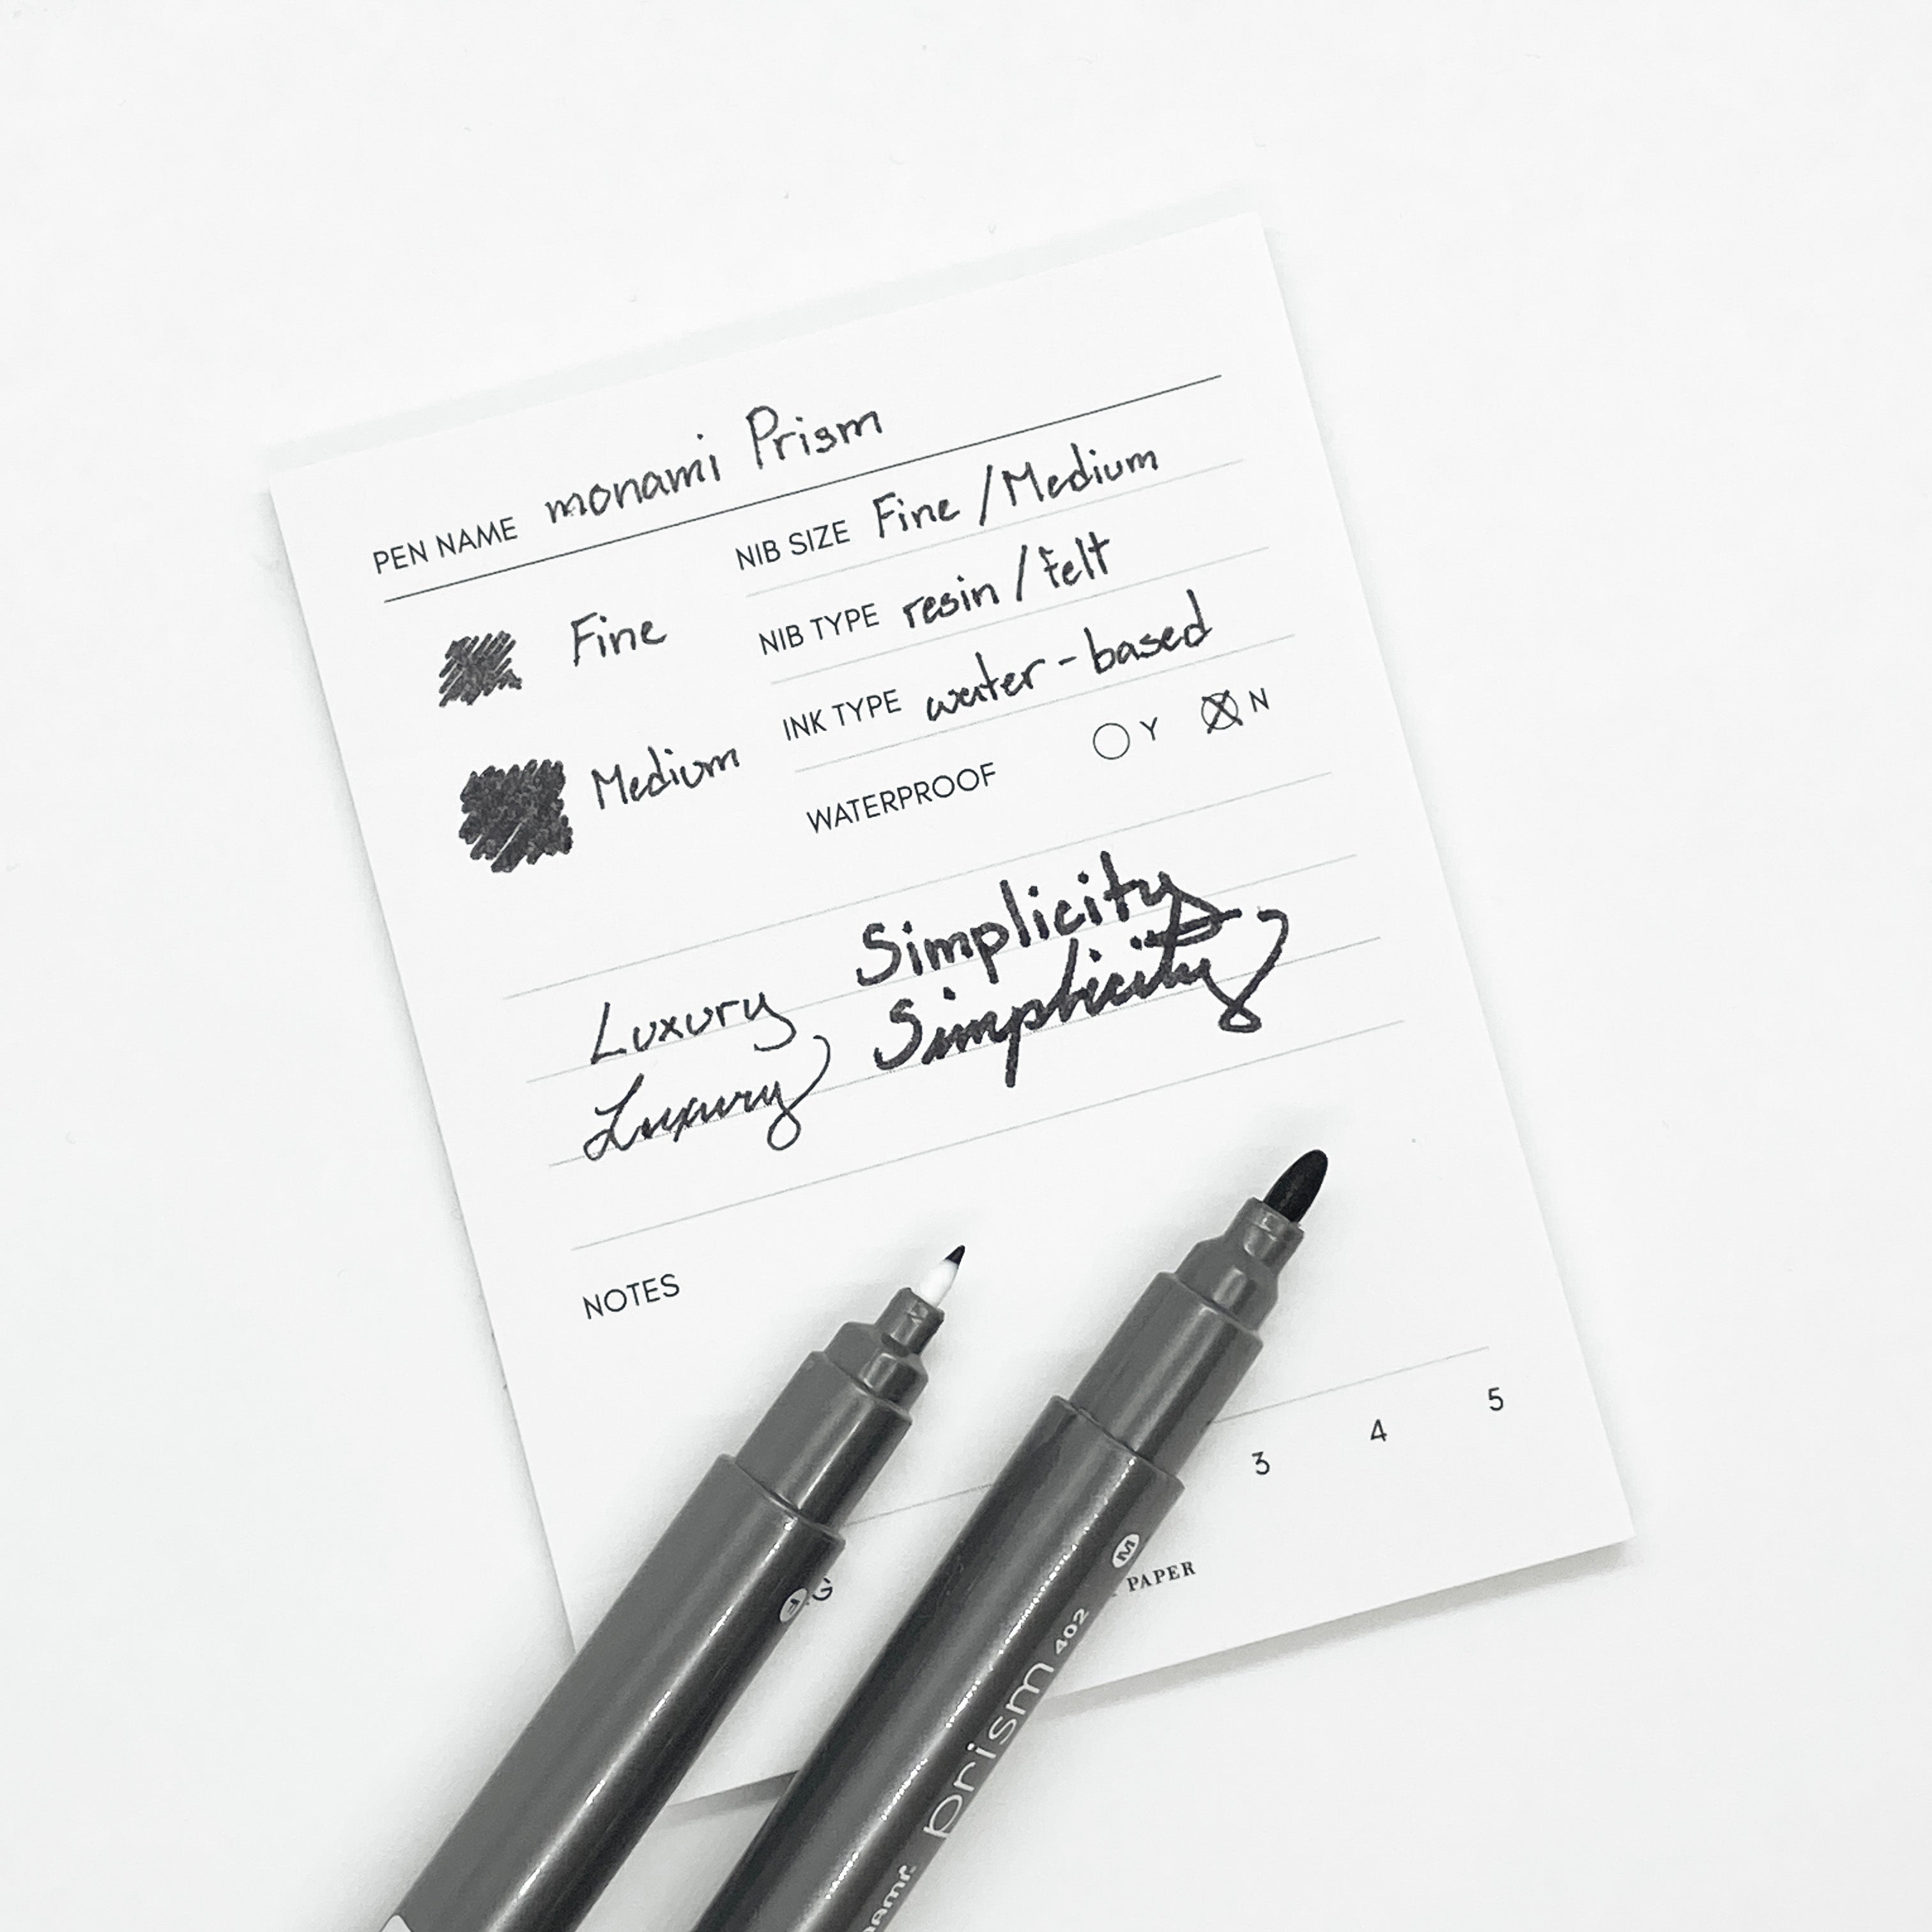 PEN NAME monami Prism
NIB SIZE Fine / Medium
Fine
NIB TYPE resin / felt
INK TYPE water-based
Medium
WATERPROOF Y N
Luxury Simplicity
Luxury Simplicity
NOTES
3 4 5
G
PAPER
F
M
prism 402